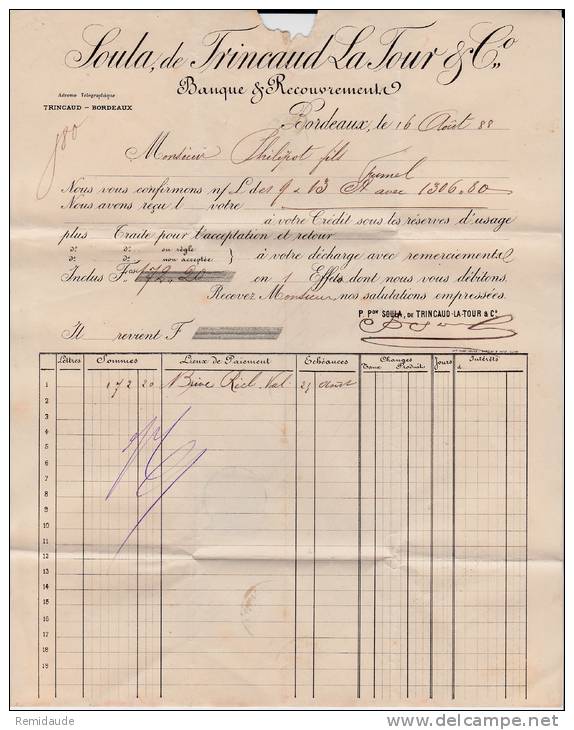 Soula, de Trincaud La Tour & Cº
Banque & Recouvrements
Adresse Télégraphique
TRINCAUD - BORDEAUX
Bordeaux, le 16 Août 88
Monsieur Philipot fils
Fumel
Nous vous confirmons n/ L. des 9 & 13 Ct avec 1306.80
Nous avons reçu l votre
à votre Crédit sous les réserves d'usage
plus Traite pour l'acceptation et retour
dº dº ou réglé } à votre décharge avec remerciements
dº dº non acceptée
Inclus F. 172.20 en 1 Effets dont nous vous débitons.
Recevez Monsieur nos salutations empressées.
P. Pon SOULA, DE TRINCAUD-LA-TOUR & Cº
Il revient F
Lettres Sommes Lieux de Paiement Echéances Changes Jours Intérêts
Taux Produit à
1 172 20 Brive 25 Août
2
3
4
5
6
7
8
9
10
11
12
13
14
15
16
17
18
Remidaude
www.delcampe.net